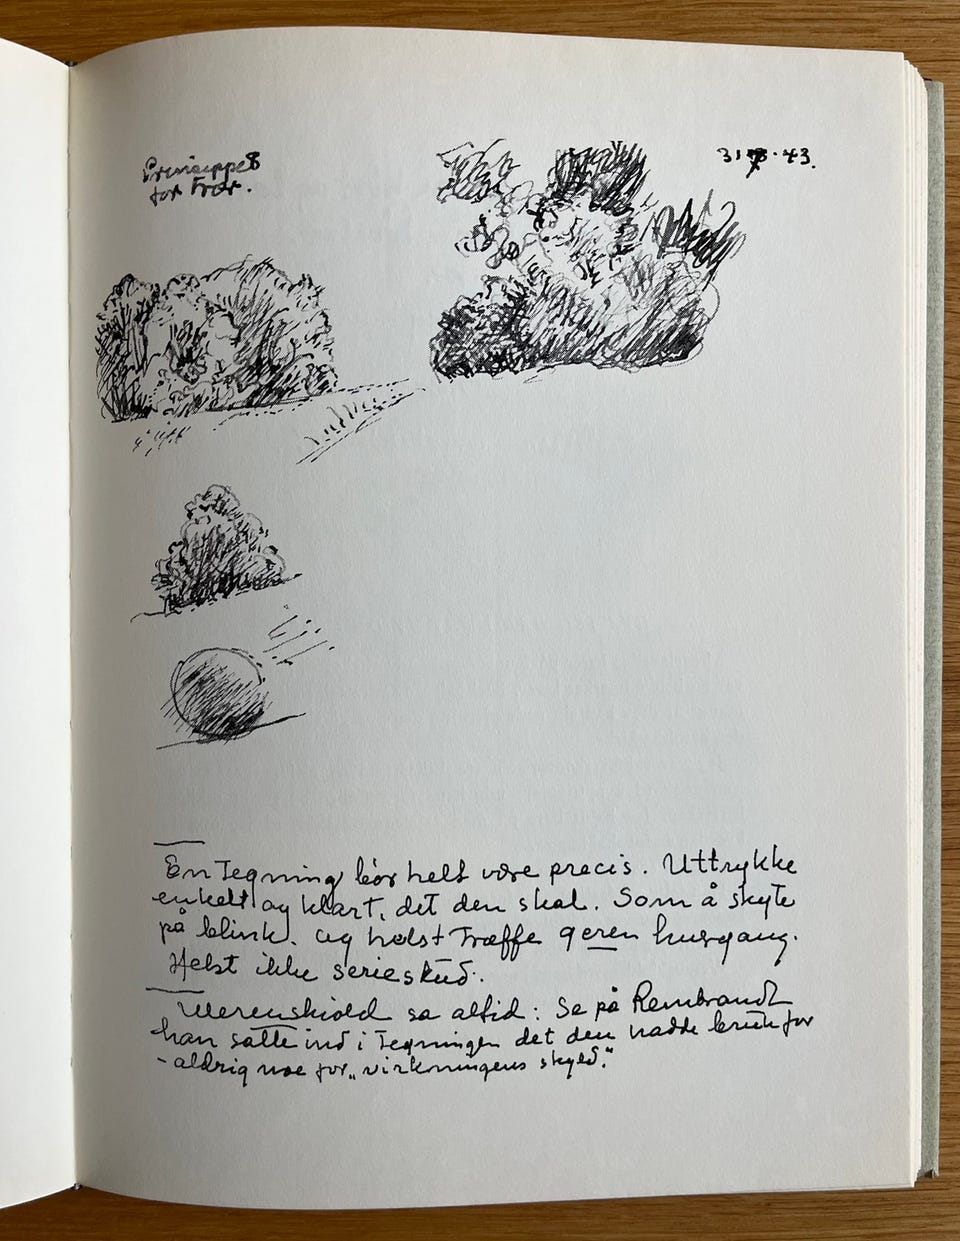 Prinsippet
for Trær.
31 · 43.
En Tegning bør helst være precis. Uttrykke
enkelt og klart, det den skal. Som å skyte
på blink. Og helst Træffe hver gang.
Helst ikke serieskud.
Werenskiold sa altid: Se på Rembrandt
han satte ind i Tegningen det den hadde bruk for
- aldrig noe for „virkningens skyld."